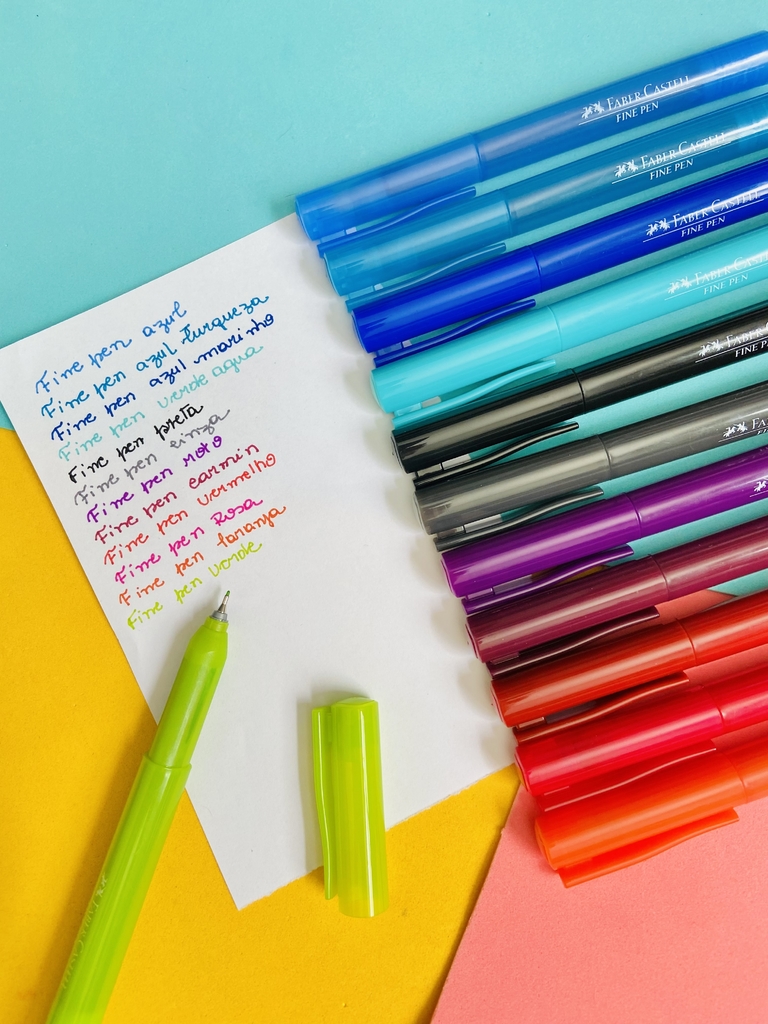 Fine pen azul
Fine pen azul turqueza
Fine pen azul marinho
Fine pen verde agua
Fine pen preta
Fine pen cinza
Fine pen roxo
Fine pen carmin
Fine pen vermelho
Fine pen Rosa
Fine pen laranja
Fine pen verde
FABER CASTELL
FINE PEN
FABER CASTELL
FINE PEN
FABER CASTELL
FINE PEN
FABER CASTELL
FINE PEN
FABER C
FINE PEN
FA
FINE